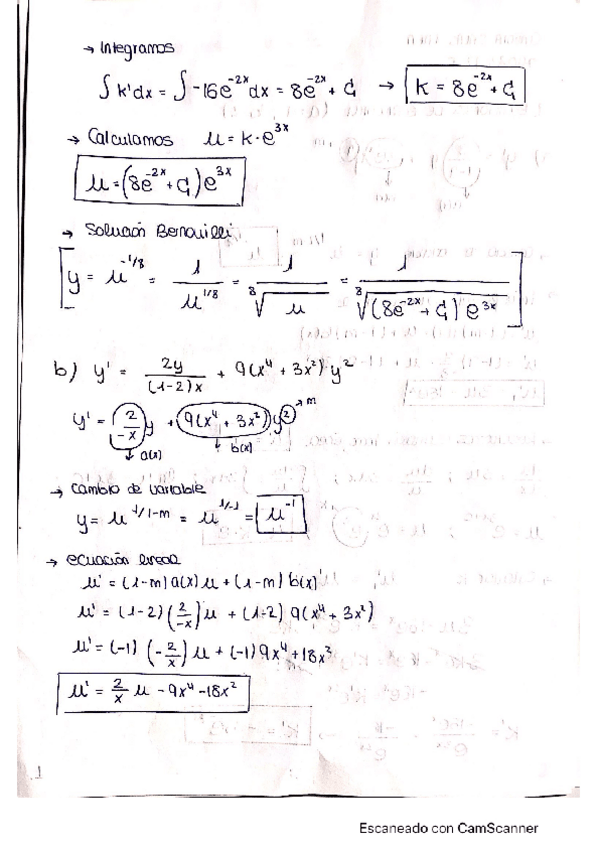 → Integramos
∫ k'dx = ∫ -16e^-2x dx = 8e^-2x + C₁ → k = 8e^-2x + C₁
→ Calculamos μ = k · e^3x
μ = (8e^-2x + C₁) e^3x
→ Solución Bernouilli
[y = μ^-1/8 = 1/μ^1/8 = 1/⁸√μ = 1/⁸√((8e^-2x + C₁) e^3x)]
b) y' = 2y/(1-2)x + 9(x⁴ + 3x²) y²
y' = (2/-x) y + 9(x⁴ + 3x²) y² → m
↓ a(x) ↓ b(x)
→ cambio de variable
y = μ^1/1-m = μ^1/-1 = μ^-1
→ ecuación lineal
μ' = (1-m) a(x) μ + (1-m) b(x)
μ' = (1-2) (2/-x) μ + (1-2) 9(x⁴ + 3x²)
μ' = (-1) (-2/x) μ + (-1) 9x⁴ + 18x²
μ' = 2/x μ - 9x⁴ - 18x²
Escaneado con CamScanner